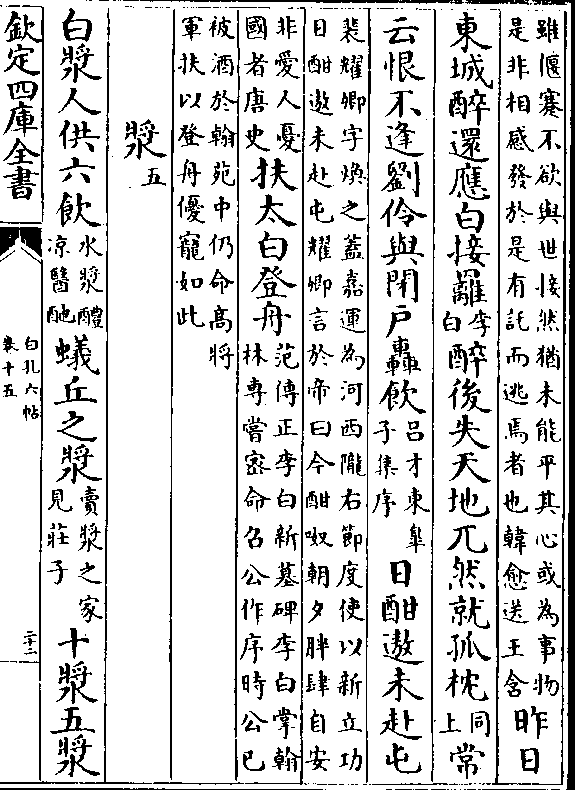 雖偃蹇不欲與世接然猶未能平其心或為事物
是非相感發於是有託而逃焉者也韓愈送王含
昨日
東城醉還應白接䍦
李
白
醉後失天地兀然就孤枕
同
上
常
云恨不逢劉伶與閉戸轟飲
吕才東臯
子集序
日酣遨未赴屯
裴耀卿字煥之蓋嘉運為河西隴右節度使以新立功
日酣遨未赴屯耀卿言於帝曰今酣呶朝夕胖肆自安
非愛人憂
國者唐史
扶太白登舟
范傳正李白新墓碑李白掌翰
林専嘗宻命召公作序時公已
被酒於翰苑中仍命髙將
軍扶以登舟優寵如此
漿五
白漿人供六飲
水漿醴
凉醫酏
蟻丘之漿
賣漿之家
見莊子
十漿五漿
欽定四庫全書
白孔六帖
卷十五
二十二